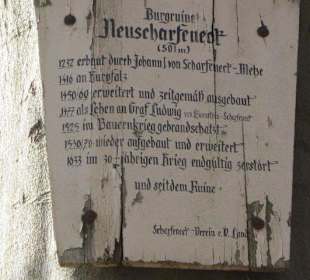 Burgruine
Neuscharfeneck
(501m)
1232 erbaut durch Johann I von Scharfeneck-Metze
1416 an Kurpfalz
1450/60 erweitert und zeitgemäß ausgebaut
1477 als Lehen an Graf Ludwig
1525 im Bauernkrieg gebrandschatzt
1530/70 wieder aufgebaut und erweitert
1633 im 30-jährigen Krieg endgültig zerstört
und seitdem Ruine
Scharfeneck-Verein e.V.